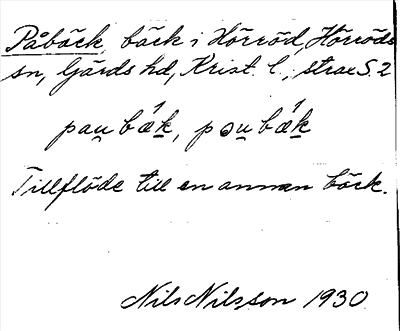 Påbäck, bäck i Hörröd, Hörröds
sn, Gärds hd, Krist. l., strax S. 2
pau bæ̀k, pou bæ̀k
Tillflöde till en annan bäck.
Nils Nilsson 1930